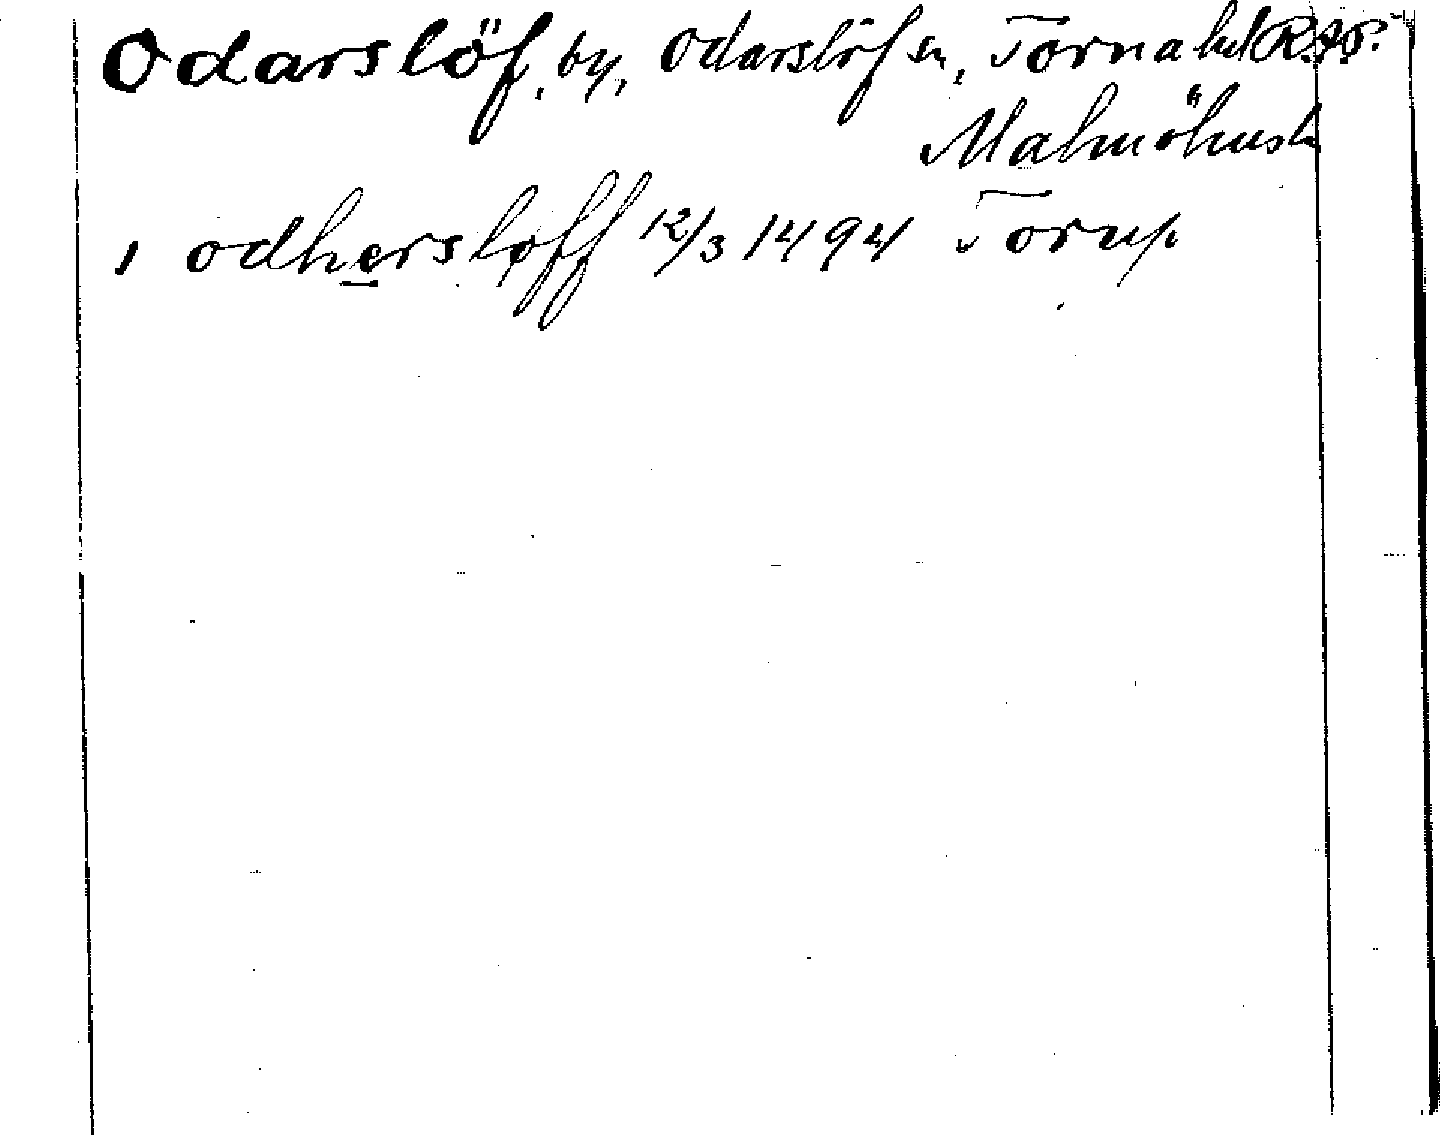 Odarslöf, by, Odarslöf sn, Torna hd RAP.
Malmöhus l
i odhersløff 12/3 1494 Torup